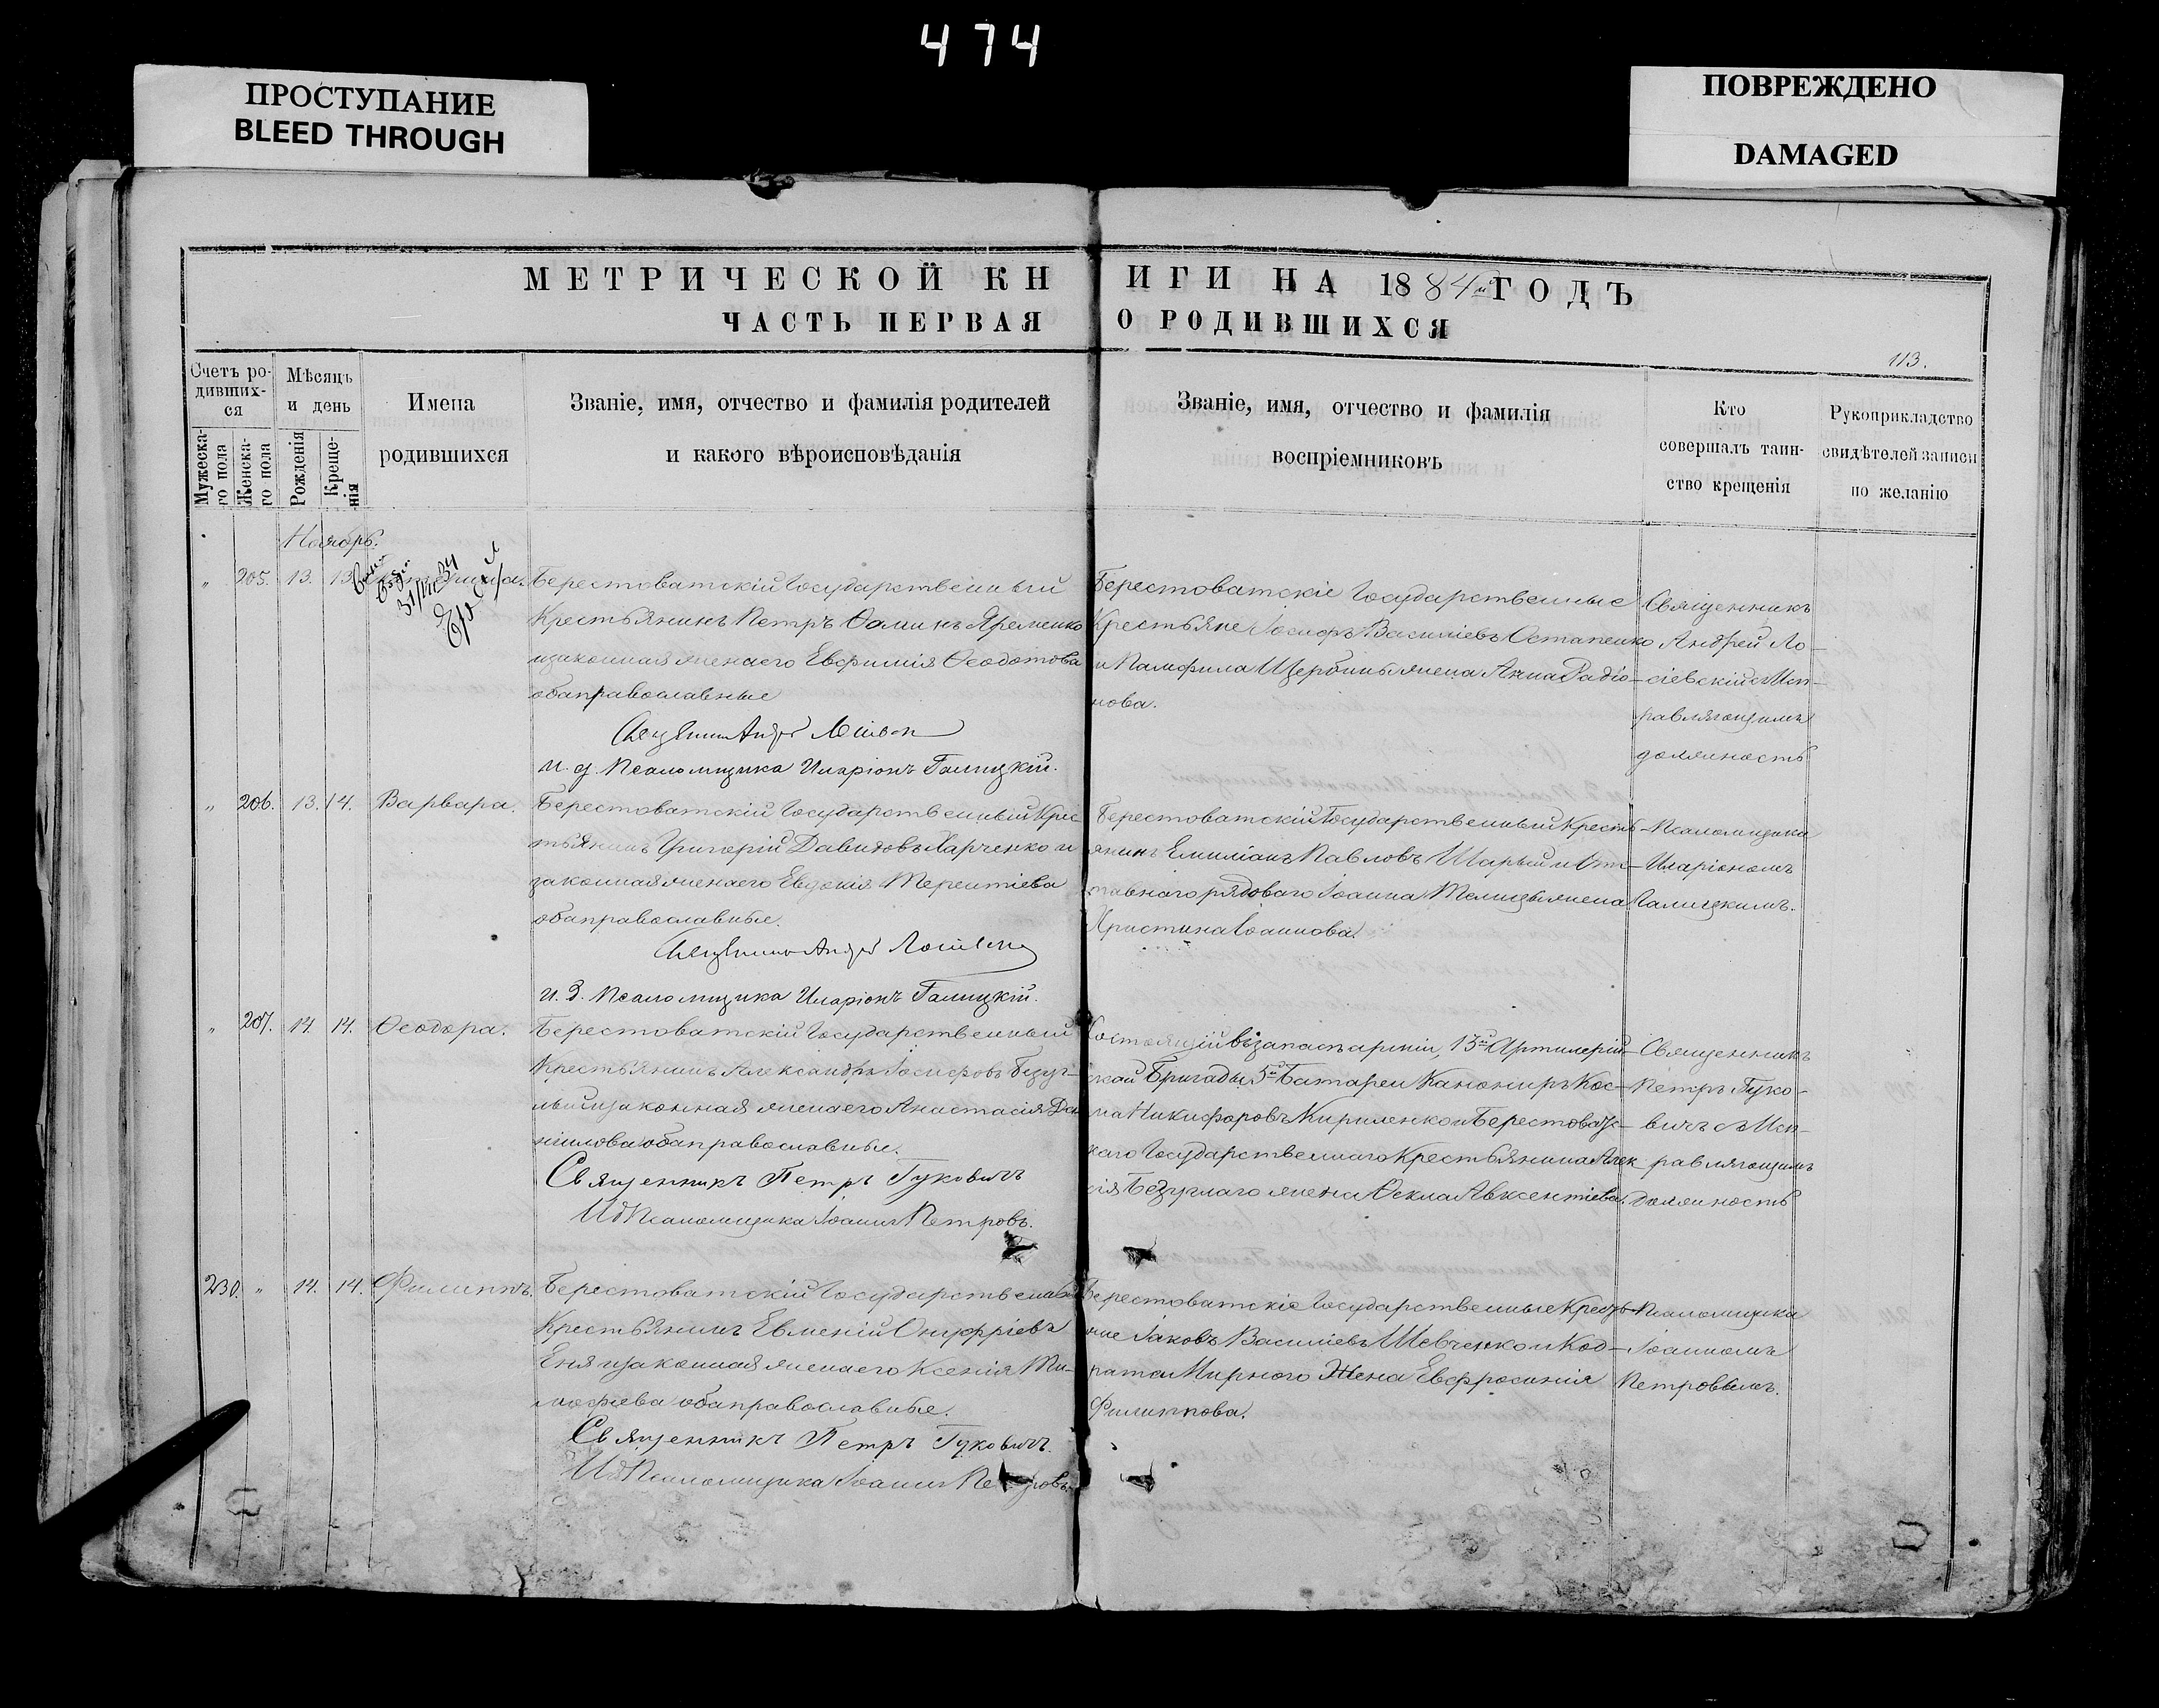 474
ПРОСТУПАНИЕ
BLEED THROUGH
ПОВРЕЖДЕНО
DAMAGED
МЕТРИЧЕСКОЙ КНИГИ НА 1884й ГОДЪ
ЧАСТЬ ПЕРВАЯ О РОДИВШИХСЯ
113.
Счетъ ро-
дивших-
ся
Мужеска-
го пола
Женска-
го пола
Мѣсяцъ
и день
Рожденія
Креще-
нія
Имена
родившихся
Званіе, имя, отчество и фамилія родителей
и какого вѣроисповѣданія
Званіе, имя, отчество и фамилія
воспріемниковъ
Кто
совершалъ таин-
ство крещенія
Рукоприкладство
свидѣтелей записи
по желанію
Ноябрь.
" 205. 13. 13.
31/VII 34
Берестоватскій Государственный
Крестьянинъ Петръ Ѳоминъ Яременко
и законная жена его Евфимія Ѳеодотова
оба православные
и. д. Псаломщика Иларіонъ Галицкій.
Берестоватскіе Государственные
Крестьяне Іосифъ Василіевъ Остапенко
и Памфила Щербины жена Анна Радіо-
нова.
Священникъ
Андрей Ло-
сіевскій съ Исп-
равляющимъ
должность
" 206. 13. 14. Варвара.
Берестоватскій Государственный Крес
тьянинъ Григорій Давидовъ Харченко и
законная жена его Евдокія Терентіева
оба православные.
и. д. Псаломщика Иларіонъ Галицкій.
Берестоватскій Государственный Кресть-
янинъ Емиліанъ Павловъ Шарый и Отс-
тавнаго рядоваго Іоанна жена
Христина Іоаннова.
Псаломщика
Иларіономъ
Галицкимъ.
" 207. 14. 14. Ѳеодора.
Берестоватскій Государственный
Крестьянинъ Александръ Іосифовъ Безуг-
лый и законная жена его Анастасія Да
ніилова оба православные.
Священникъ Петръ Гуковичъ
ИД Псаломщика Іоаннъ Петровъ.
Состоящій въ запасѣ арміи, 13й Артилерій-
ской Бригады, 5й Батареи Канониръ Кос-
ма Никифоровъ Кириленко и Берестоватс-
каго Государственнаго Крестьянина Алек
сія Безуглаго жена Ѳекла Авксентіева.
Священникъ
Петръ Гуко-
вичъ съ Исп-
равляющимъ
должность
230. " 14. 14. Филиппъ.
Берестоватскій Государственный
Крестьянинъ Евменій Онуфріевъ
Еня и законная жена его Ксенія Ти-
мофеева оба православные.
Священникъ Петръ Гуковичъ.
ИД Псаломщика Іоаннъ Петровъ.
Берестоватскіе Государственные Кресть-
яне Іаковъ Василіевъ Шевченко и Код-
рата Мирного Жена Евфросинія
Филиппова.
Псаломщика
Іоанномъ
Петровымъ.